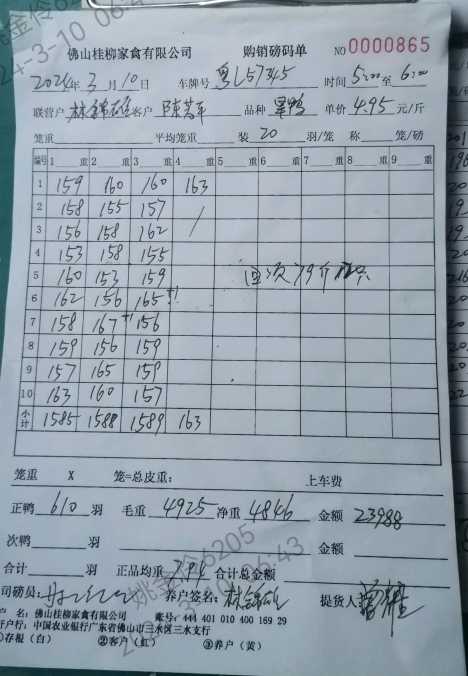 佛山桂柳家禽有限公司 购销磅码单 NO 0000865
2024年3月10日 车牌号 粤L57345 时间 5:00至6:00
联营户 林锦雄 客户 品种 单价 4.95元/斤
笼重: 平均笼重: 装20羽/笼 称 笼/磅
编号 1 重 2 重 3 重 4 重 5 重 6 重 7 重 8 重 9 重
1 159 160 160 163
2 158 155 157 /
3 156 158 162
4 153 158 155
5 160 153 159 回项79斤
6 162 156 165 +1
7 158 167 +1 156
8 159 156 159
9 157 165 159
10 163 160 157
小计 1585 1588 1589 163
笼重 X 笼=总皮重: 上车费
正鸭 610羽 毛重 4925 净重 4846 金额 23988
次鸭 羽 金额
合计 羽 正品均重 7.94 合计总金额
司磅员: 养户签名: 林锦雄 提货人
户 名: 佛山桂柳家禽有限公司 账号: 444 401 010 400 169 29
开户行: 中国农业银行广东省佛山市三水区三水支行
①存根(白) ②客户(红) ③养户(黄)
姚金伶6205
2024-3-10 06:43